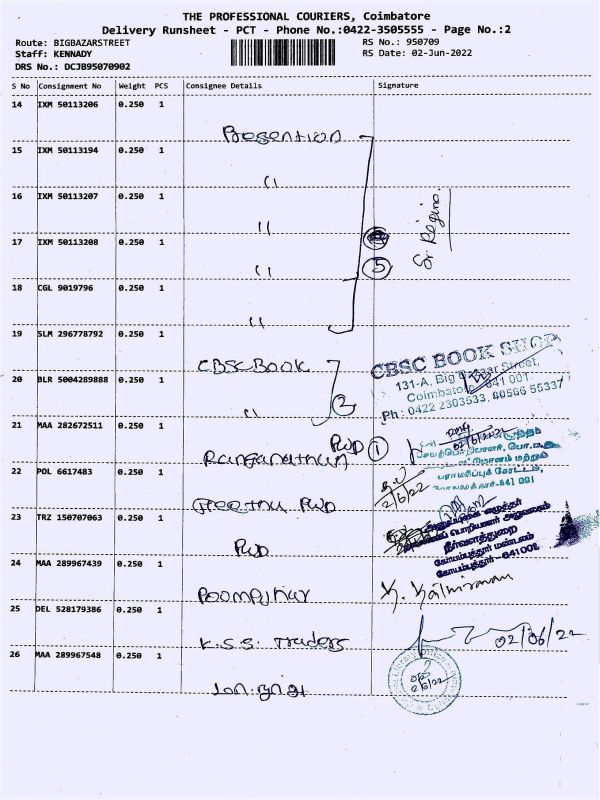 THE PROFESSIONAL COURIERS, Coimbatore
Delivery Runsheet - PCT - Phone No.:0422-3505555 - Page No.:2
Route: BIGBAZARSTREET
RS No.: 950709
Staff: KENNADY
RS Date: 02-Jun-2022
DRS No.: DCJB95070902
S No Consignment No Weight PCS Consignee Details Signature
14 IXM 50113206 0.250 1
Presention
15 IXM 50113194 0.250 1
"
16 IXM 50113207 0.250 1
"
Sr. Regina.
17 IXM 50113208 0.250 1
" 5
18 CGL 9019796 0.250 1
"
19 SLM 296778792 0.250 1
CBSC Book
CBSC BOOK SHOP
131-A, Big Bazaar Street,
Coimbatore 641 001.
Ph : 0422 2303533, 80566 55337
20 BLR 5004289888 0.250 1
" 2
21 MAA 282672511 0.250 1
Ranganathan PWD 1
02/6/2022
பராமரிப்புக் கோட்டம்,
641 001
22 POL 6617483 0.250 1
2/6/22
Geetha PWD
23 TRZ 150707063 0.250 1
PWD
நீர்வளத்துறை
கோயம்புத்தூர் மண்டலம்
கோயம்புத்தூர் - 641001
24 MAA 289967439 0.250 1
Poompuhar
25 DEL 528179386 0.250 1
K.S.S. Traders
02/06/22
26 MAA 289967548 0.250 1
2/6/22